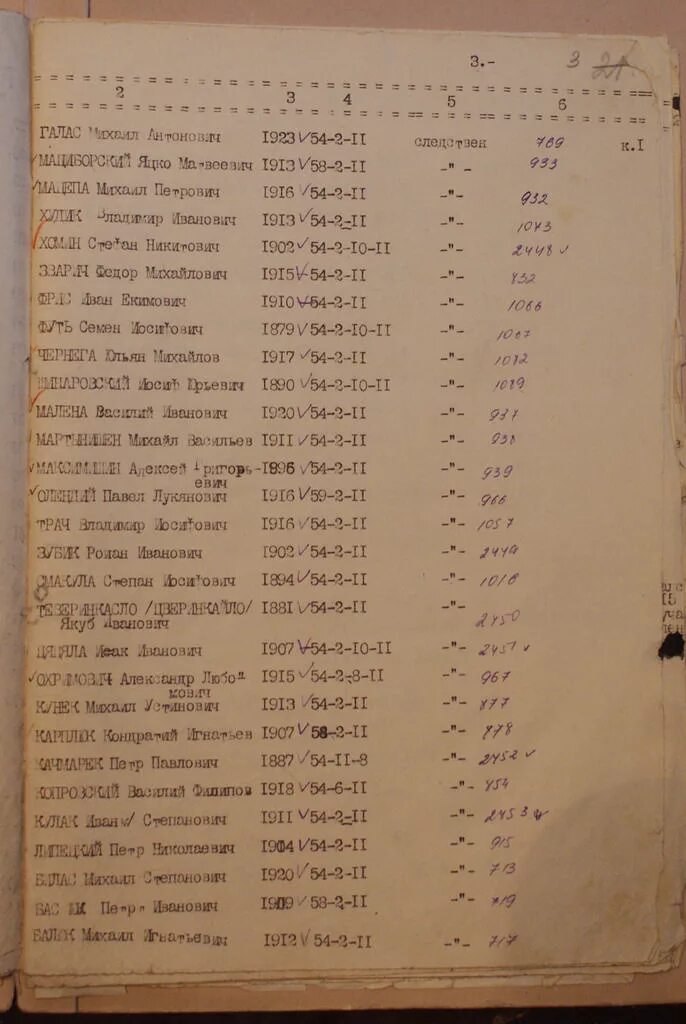 3.- 3 21
2 3 4 5 6
ГАЛАС Михаил Антонович 1923 √ 54-2-II следствен 769 к.I
√ МАЦИБОРСКИЙ Яцко Матвеевич 1913 √ 58-2-II -"- 933
√ МАЦЕПА Михаил Петрович 1916 √ 54-2-II -"- 932
ХУЛИК Владимир Иванович 1913 √ 54-2-II -"- 1073
√ ХОМИН Стефан Никитович 1902 √ 54-2-10-II -"- 2448 √
ЗЗАРИЧ Федор Михайлович 1915 √ 54-2-II -"- 832
ФРИС Иван Екимович 1910 √ 54-2-II -"- 1066
ФУТЬ Семен Иосифович 1879 √ 54-2-10-II -"- 1067
ЧЕРНЕГА Юльян Михайлов 1917 √ 54-2-II -"- 1082
Иосиф Юрьевич 1890 √ 54-2-10-II -"- 1089
√ МАЛЕНА Василий Иванович 1920 √ 54-2-II -"- 937
МАРТЫНИШЕН Михайл Васильев 1911 √ 54-2-II -"- 938
√ МАКСИМИШИН Алексей Григорь- 1896 √ 54-2-II -"- 939
евич
√ ОЛЕНДИЙ Павел Лукянович 1916 √ 59-2-II -"- 966
ТРАЧ Владимир Иосифович 1916 √ 54-2-II -"- 1057
ЗУБИК Роман Иванович 1902 √ 54-2-II -"- 2449
СМАКУЛА Степан Иосифович 1894 √ 54-2-II -"- 1016
ТЕЗЕРИНКАСЛО /ЦЗЕРИНКАЙЛО/ 1881 √ 54-2-II -"- 2450
Якуб Иванович
ЦЯПЯЛА Исак Иванович 1907 √ 54-2-10-II -"- 2451 √
√ ОХРИМОВИЧ Александр Любо- 1915 √ 54-2-8-II -"- 967
мович
КУНЕК Михаил Устинович 1913 √ 54-2-II -"- 877
КАРПЛЮК Кондратий Игнатьев 1907 √ 58-2-II -"- 878
КАЧМАРЕК Петр Павлович 1887 √ 54-II-8 -"- 2452 √
КОПРОВСКИЙ Василий Филипов 1918 √ 54-6-II -"- 854
КУЛАК Иван/ Степанович 1911 √ 54-2-II -"- 2453 √
ЛИПЕЦКИЙ Петр Николаевич 1904 √ 54-2-II -"- 915
БИЛАС Михаил Степанович 1920 √ 54-2-II -"- 713
Петр Иванович 1909 √ 58-2-II -"- 719
БАЛЮК Михаил Игнатьевич 1912 √ 54-2-II -"- 717